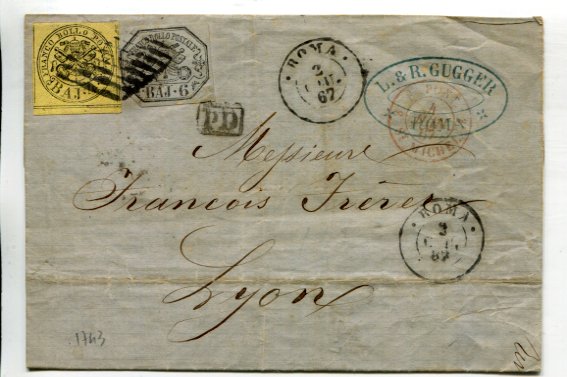 FRANCO BOLLO POSTALE
BAJ
FRANCO BOLLO POSTALE
BAJ-6
ROMA
2
67
L. & R. GUGGER
ROMA
PD
Messieurs
François Frères
ROMA
3
67
Lyon
1743